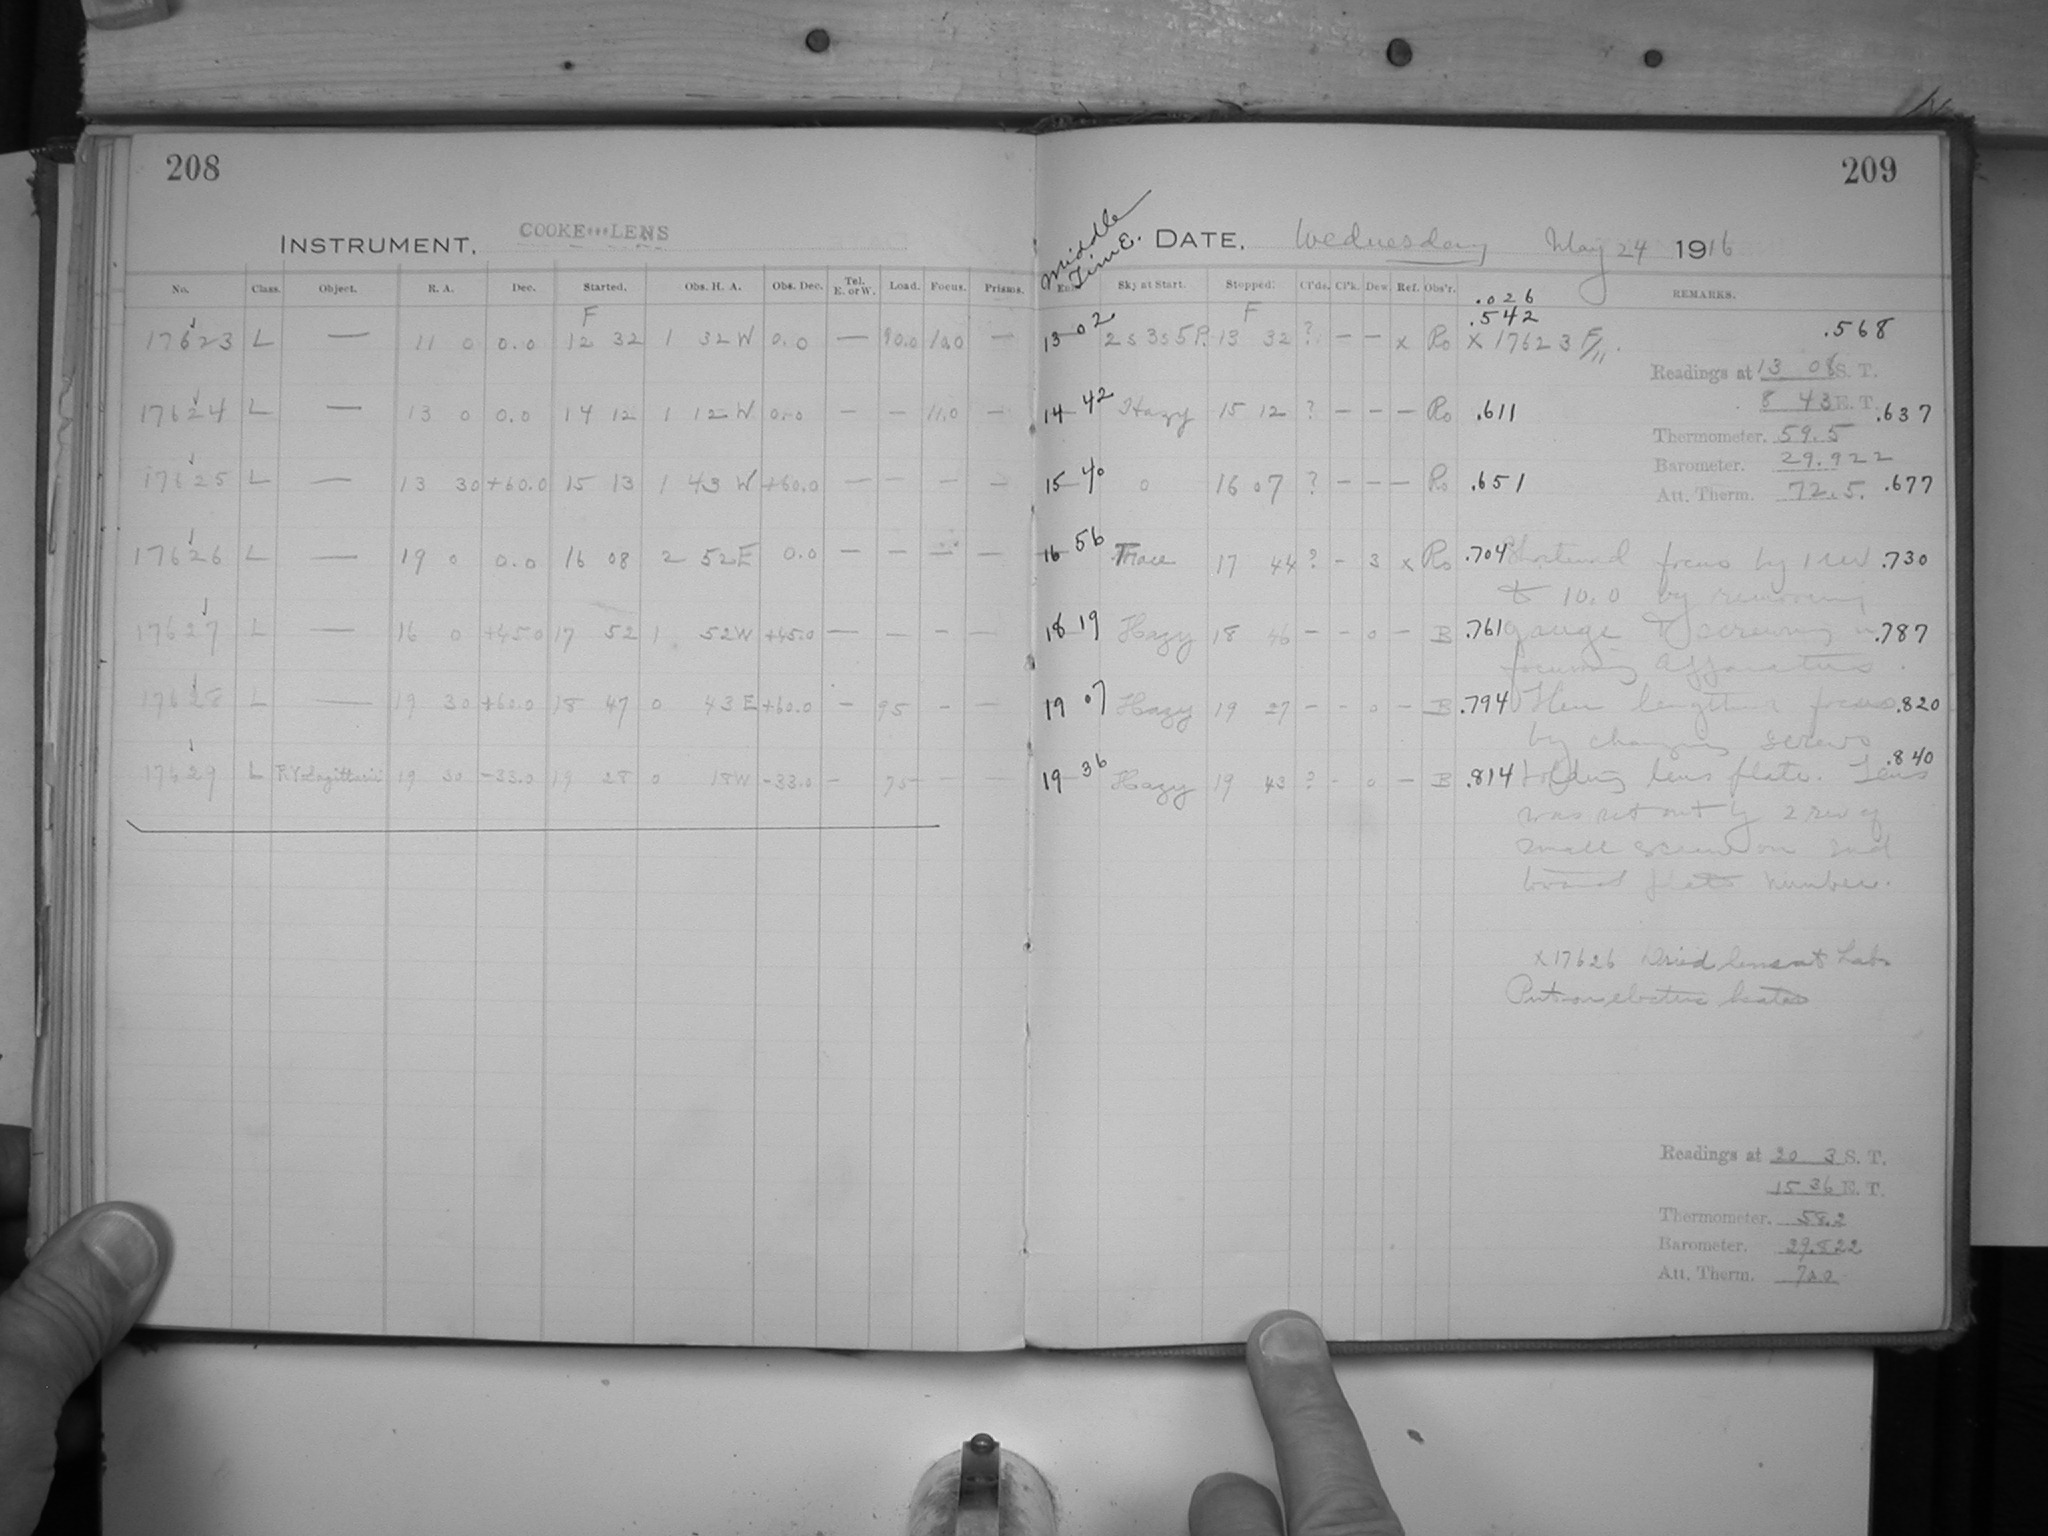 208
INSTRUMENT, COOKE LENS
No. Class. Object. R. A. Dec. Started. Obs. H. A. Obs. Dec. Tel. E. or W. Load. Focus. Prisms.
F
17623 L — 11 0 0.0 12 32 1 32 W 0.0 — 90.0 10.0 —
17624 L — 13 0 0.0 14 12 1 12 W 0.0 — — 11.0 —
17625 L — 13 30 +60.0 15 13 1 43 W +60.0 — — — —
17626 L — 19 0 0.0 16 08 2 52 E 0.0 — — — —
17627 L — 16 0 +45.0 17 52 1 52 W +45.0 — — — —
17628 L — 19 30 +60.0 18 47 0 43 E +60.0 — 95 — —
17629 L RY Sagittarii 19 30 -33.0 19 28 0 18 W -33.0 — 75 — —
209
Middle Time.
DATE, Wednesday May 24 1916
Sky at Start. Stopped. Cl'ds. Cl'k. Dew Ref. Obs'r. REMARKS.
.026
F .542
13 02 2s 3s 5P. 13 32 ? — — x Ro x 17623 F/11. .568
Readings at 13 08 S. T.
8 43 E. T.
14 42 Hazy 15 12 ? — — — Ro .611 .637
Thermometer. 59.5
Barometer. 29.922
15 40 0 16 07 ? — — — Ro .651 .677
Att. Therm. 72.5.
16 56 Trace 17 44 ? - 3 x Ro .704 Shortened focus by 1 rev .730
to 10.0 by removing
18 19 Hazy 18 46 — — 0 — B .761 gauge & screwing in .787
focusing apparatus.
19 07 Hazy 19 27 — — 0 — B .794 Then lengthen focus .820
by changing screws
19 36 Hazy 19 43 ? - 0 — B .814 holding lens plate. Lens .840
was set out by 2 rev of
small screw on
number.
x 17626 Dried lens at Lab.
Put on electric heater
Readings at 20 3 S. T.
15 36 E. T.
Thermometer. 58.2
Barometer. 29.822
Att. Therm.